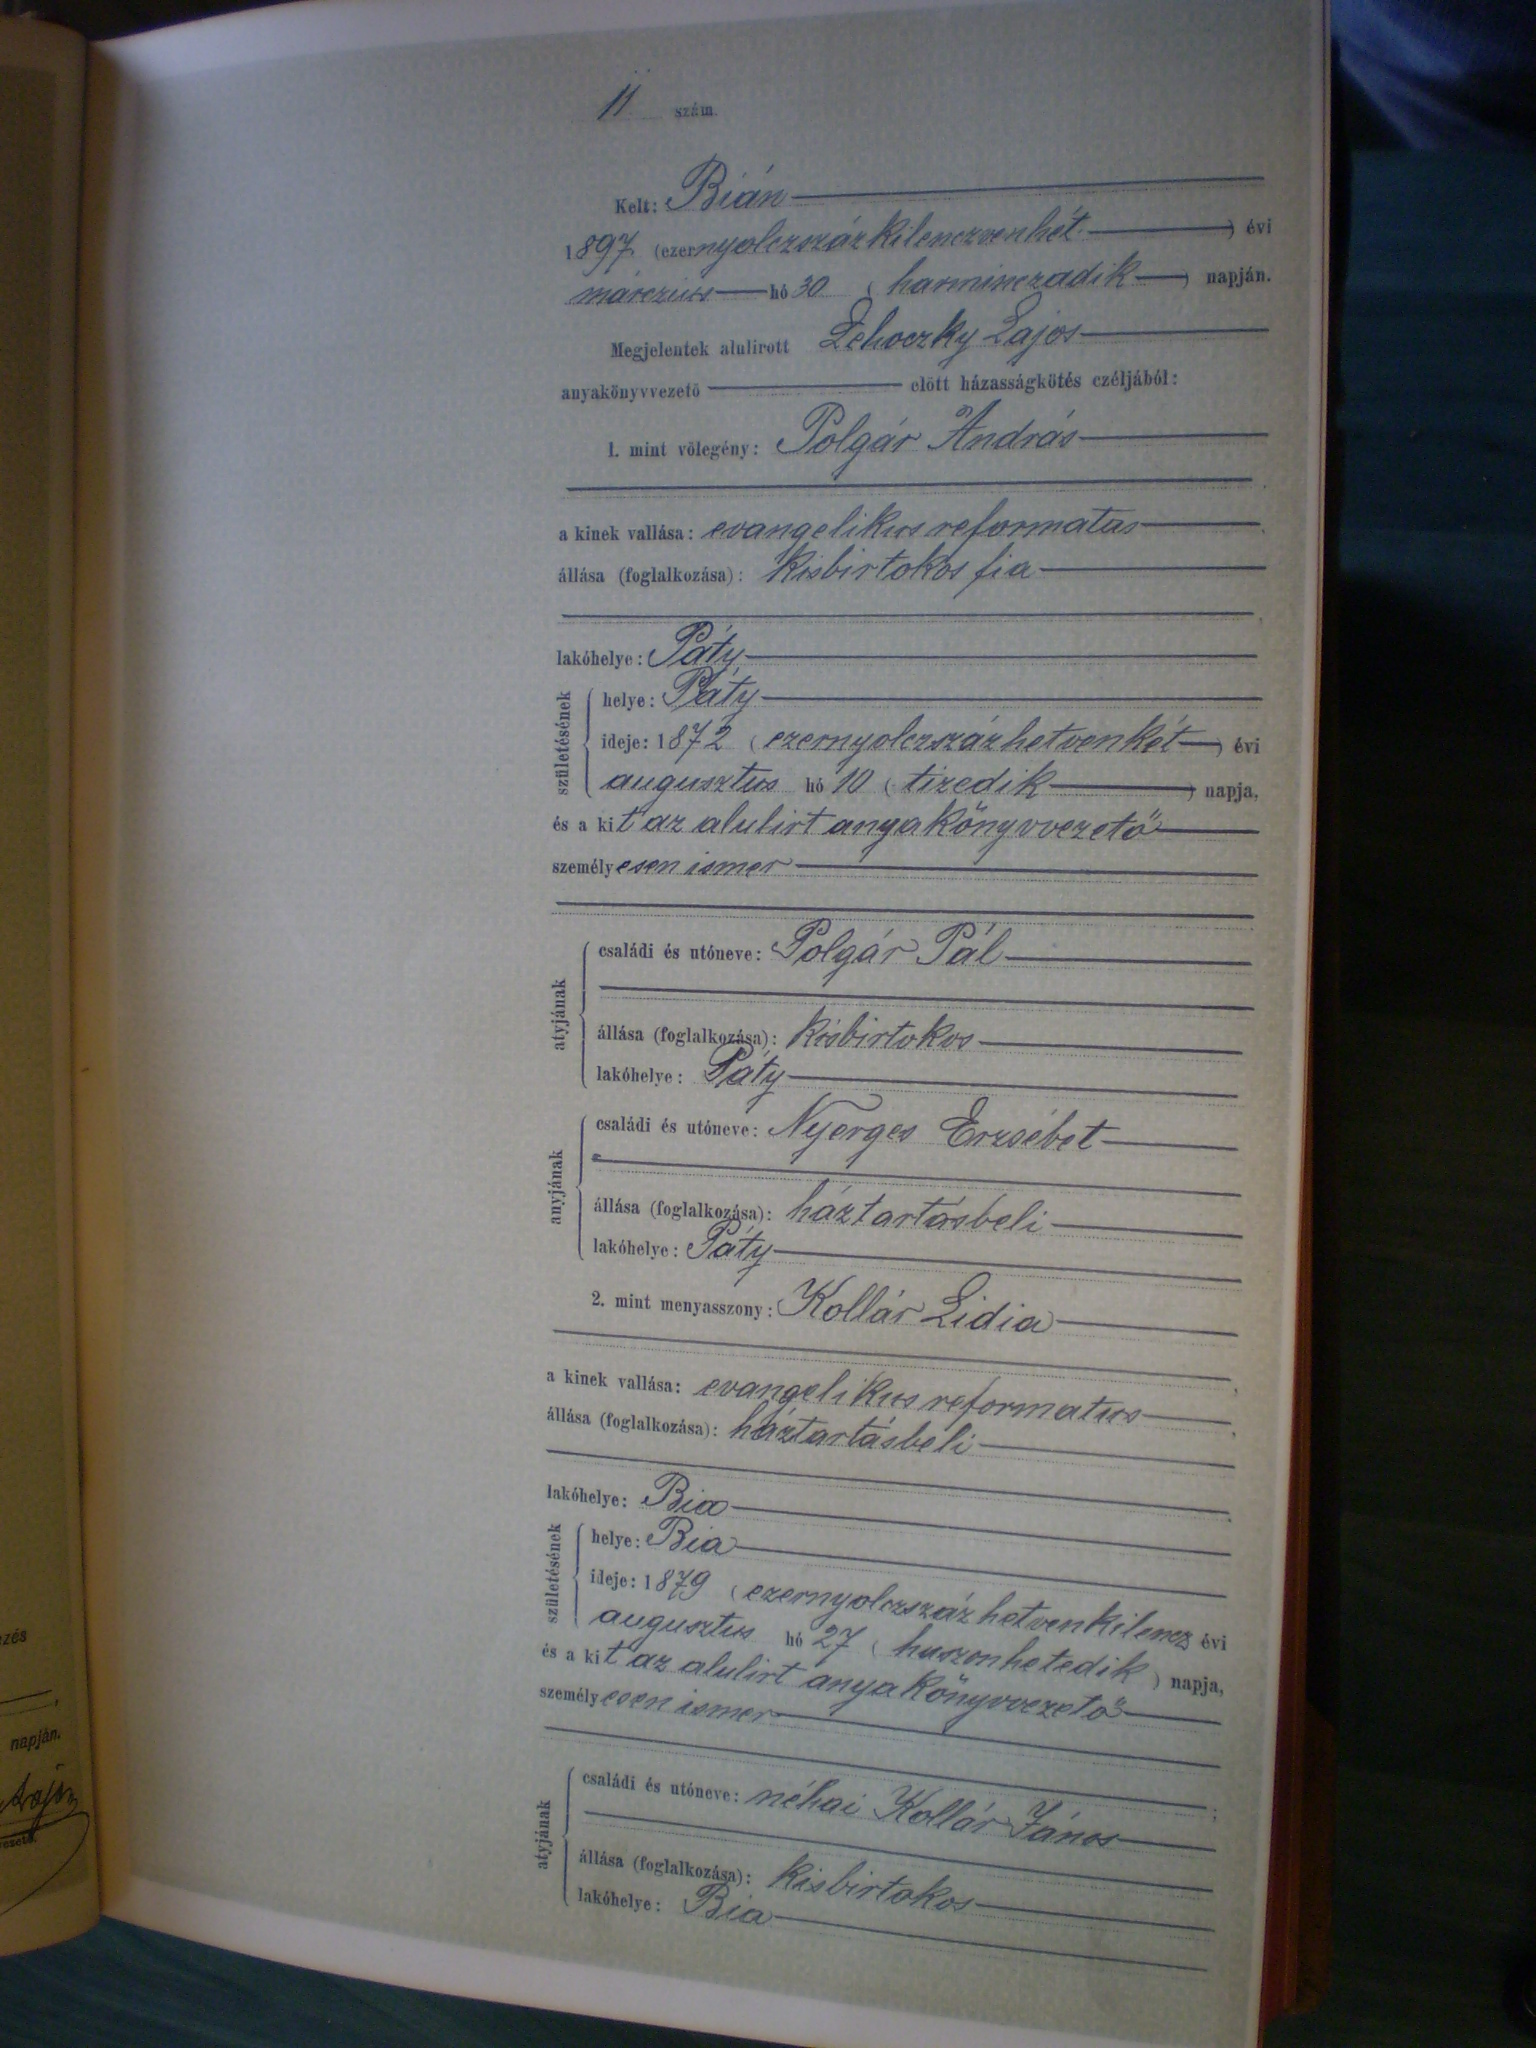 11 szám.
Kelt: Bián
1897 (ezernyolczszázkilenczvenhét) évi
márczius hó 30 (harminczadik) napján.
Megjelentek alulirott Zehoczky Lajos
anyakönyvvezető előtt házasságkötés czéljából:
1. mint vőlegény: Polgár András
a kinek vallása: evangelikus reformatus
állása (foglalkozása): kisbirtokos fia
lakóhelye: Páty
születésének
helye: Páty
ideje: 1872 (ezernyolczszázhetvenkét) évi
augusztus hó 10 (tizedik) napja,
és a kit az alulirt anyakönyvvezető
személyesen ismer
atyjának
családi és utóneve: Polgár Pál
állása (foglalkozása): kisbirtokos
lakóhelye: Páty
anyjának
családi és utóneve: Nyerges Erzsébet
állása (foglalkozása): háztartásbeli
lakóhelye: Páty
2. mint menyasszony: Kollár Lidia
a kinek vallása: evangelikus reformatus
állása (foglalkozása): háztartásbeli
lakóhelye: Bia
születésének
helye: Bia
ideje: 1879 (ezernyolczszázhetvenkilencz évi
augusztus hó 27 (huszonhetedik) napja,
és a kit az alulirt anyakönyvvezető
személyesen ismer
atyjának
családi és utóneve: néhai Kollár János
állása (foglalkozása): kisbirtokos
lakóhelye: Bia
napján.